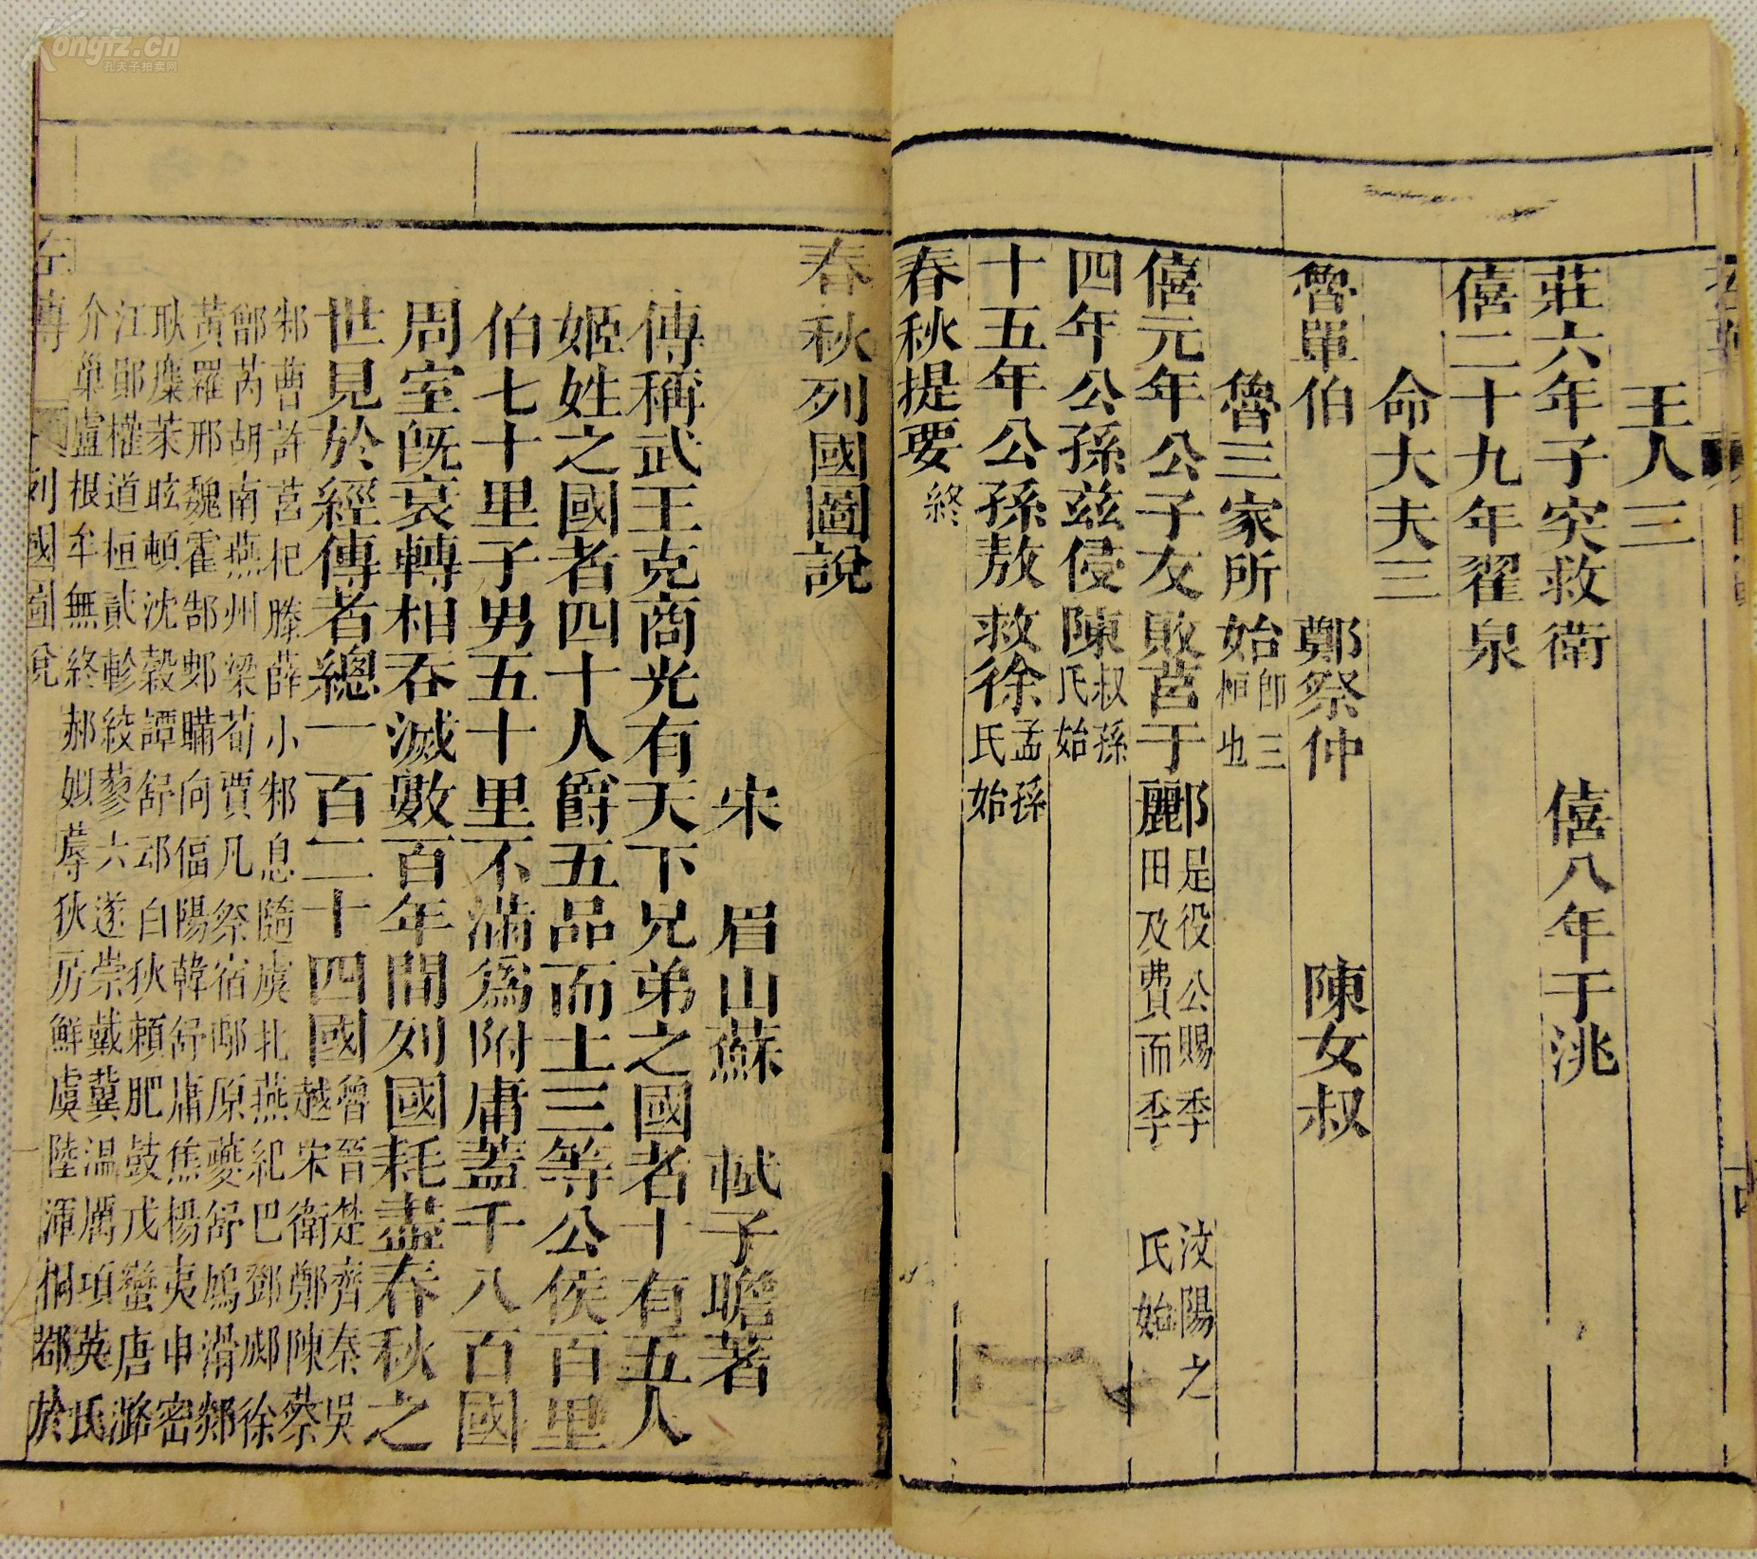 王人三
莊六年子突救衛　僖八年于洮
僖二十九年翟泉
命大夫三
魯單伯　鄭祭仲　陳女叔
魯三家所始即三桓也
僖元年公子友敗莒于酈是役公賜季汶陽之田及費而季氏始
四年公孫茲侵陳叔孫氏始
十五年公孫敖救徐孟孫氏始
春秋提要終
春秋列國圖說
宋　眉山蘇　軾子瞻著
傳稱武王克商光有天下兄弟之國者十有五人
姬姓之國者四十人爵五品而土三等公侯百里
伯七十里子男五十里不滿爲附庸蓋千八百國
周室旣衰轉相吞滅數百年間列國耗盡春秋之
世見於經傳者總一百二十四國魯晉楚齊秦吳越宋衛鄭陳蔡
邾曹許莒杞滕薛小邾息隨虞北燕紀巴鄧郕徐
鄫芮胡南燕州梁荀賈凡祭宿鄅原夔舒鳩滑郯
黃羅邢魏霍郜鄋瞞向偪陽韓舒庸焦楊夷申密
耿麇萊眩頓沈穀譚舒邱白狄賴肥鼓戎蠻唐潞
江鄖權道桓貳軫絞蓼六遂崇戴冀溫厲項英氏
介巢盧根牟無終郝姒蓐狄房鮮虞陸渾桐鄀於
左傳　列國圖說　一
Kongfz.cn
孔夫子拍卖网